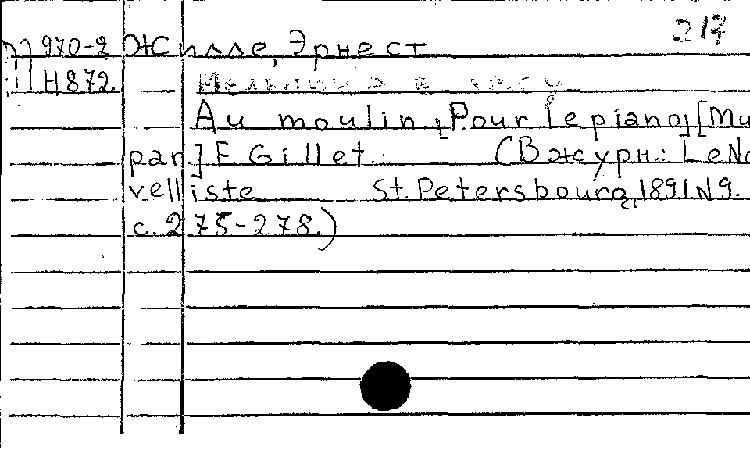 217
970-2 Жилле, Эрнест
H872.
Au moulin [Pour le piano] [Mu
par] E Gillet (В журн: Le No
velliste St. Petersbourg, 1891 N9.
c. 275-278.)